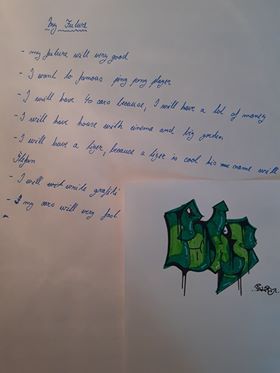 My Future
- my future will very good
- I want to famous ping pong player
- I will have 40 cars because, I will have a lot of money
- I will have house with cinema and big garden
- I will have a tiger, because a tiger is cool his name will
Stefan
- I will write graffiti
- my cars will very fast